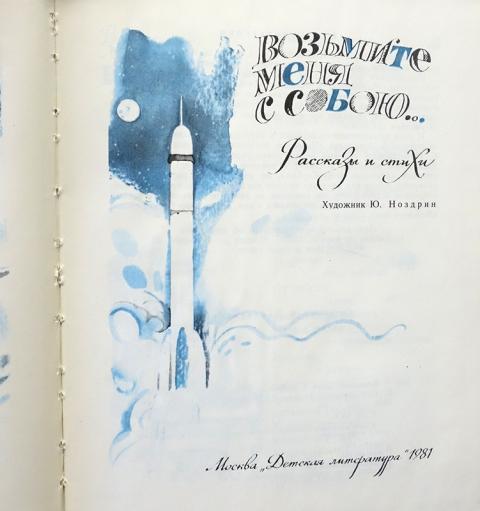 Возьмите
меня
с собою...
Рассказы и стихи
Художник Ю. Ноздрин
Москва „Детская литература" 1981